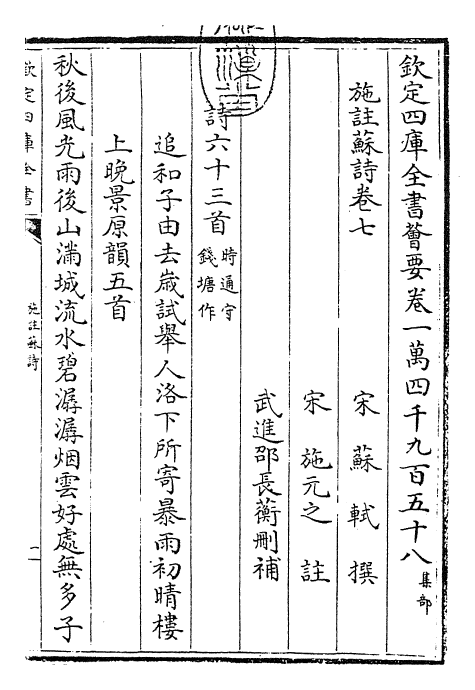 欽定四庫全書薈要卷一萬四千九百五十八 集部
施註蘇詩卷七
宋 蘇軾 撰
宋 施元之 註
武進邵長蘅刪補
詩六十三首 時通守錢塘作
追和子由去歲試舉人洛下所寄暴雨初晴樓
上晚景原韻五首
秋後風光雨後山滿城流水碧潺潺烟雲好處無多子
欽定四庫全書
施註蘇詩
一